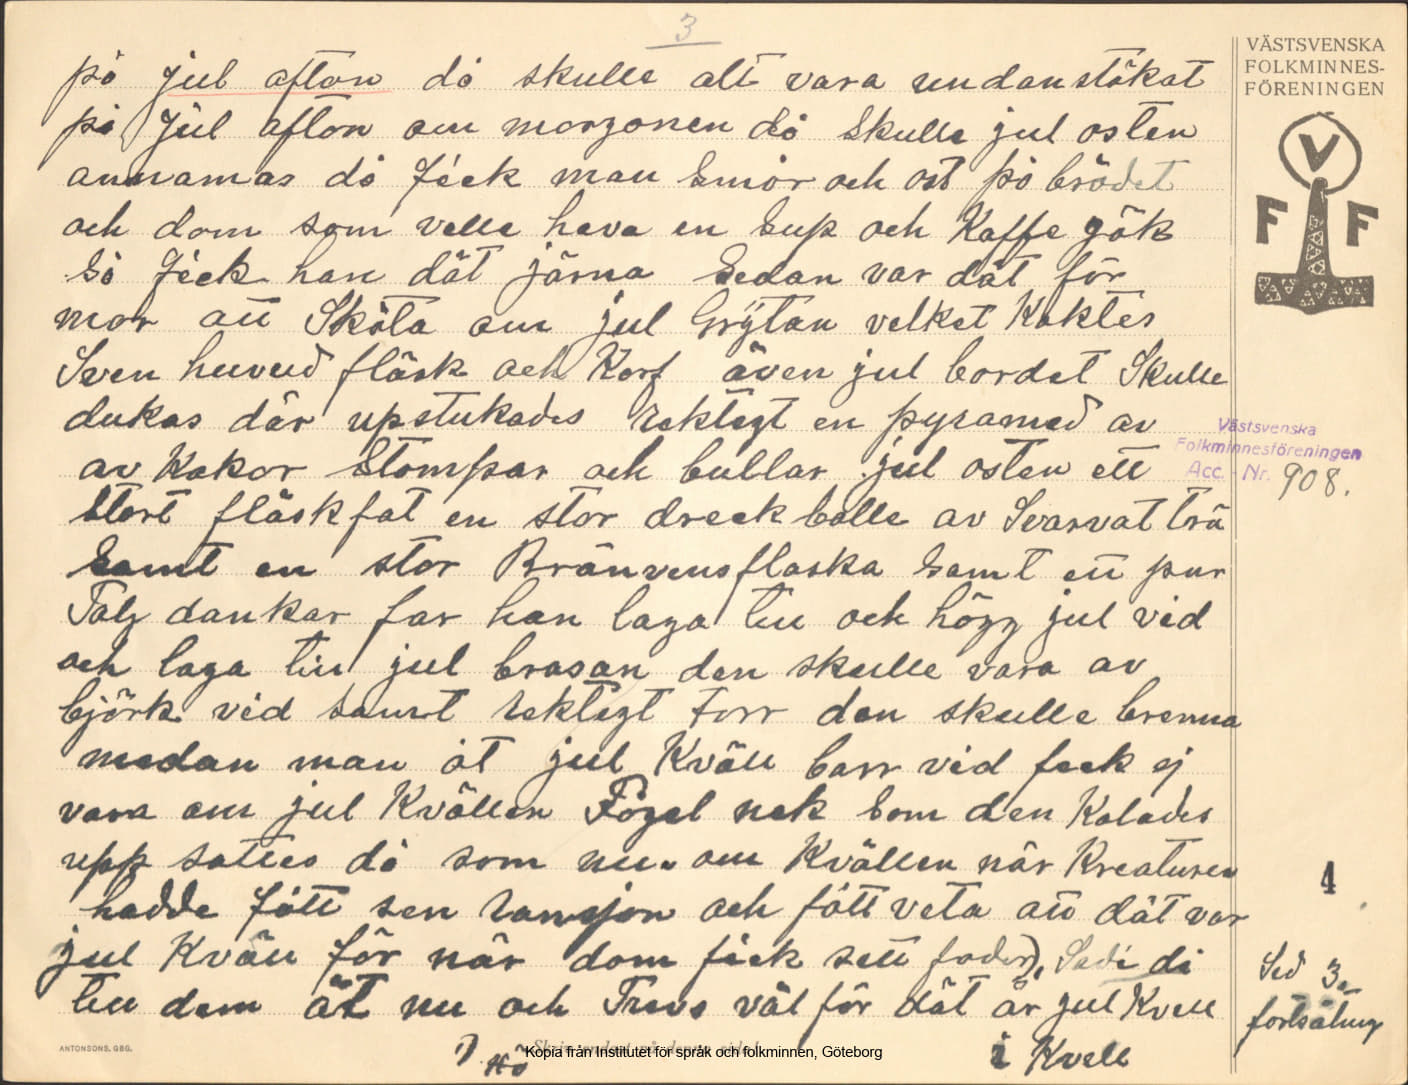 3
VÄSTSVENSKA
FOLKMINNES-
FÖRENINGEN
V
F F
på jul afton då skulle alt vara undanstökat
på jul afton om morgonen då skulle jul osten
annamas då fick man smör och ost på brödet
och dom som velle hava en sup och Kaffe gök
så fick han dät järna sedan var dät för
mor att Sköta om jul Grytan velket Koktes
Sven huvud fläsk och Korf även jul bordet Skulle
dukas där upstukades rektigt en pyramed av
av Kakor Stompar och bullar jul osten ett
Stort fläskfat en stor dreck bolle av Svarvat trä
Samt en stor Bränvensflaska samt ett par
Talg dankar far han laga till och högg jul ved
och laga till jul brasan den skulle vara av
björk ved samt rektigt torr den skulle brenna
medan man åt jul Kväll barr ved feck ej
vara om jul Kvällen Fogel nek som den Kalades
upp sattes då som nu om Kvällen när Kreaturen
hadde fått sen ransjon och fått veta att dät var
jul Kväll för när dom fick sett foder), Sade di
till dem ät nu och Trevs väl för dät är jul Kvell
i Kvell
Västsvenska
Folkminnesföreningen
Acc. - Nr. 908.
4
Sed 3.
fortsätning
ANTONSONS, GBG.
Skriv endast på denna sida!
Kopia från Institutet för språk och folkminnen, Göteborg